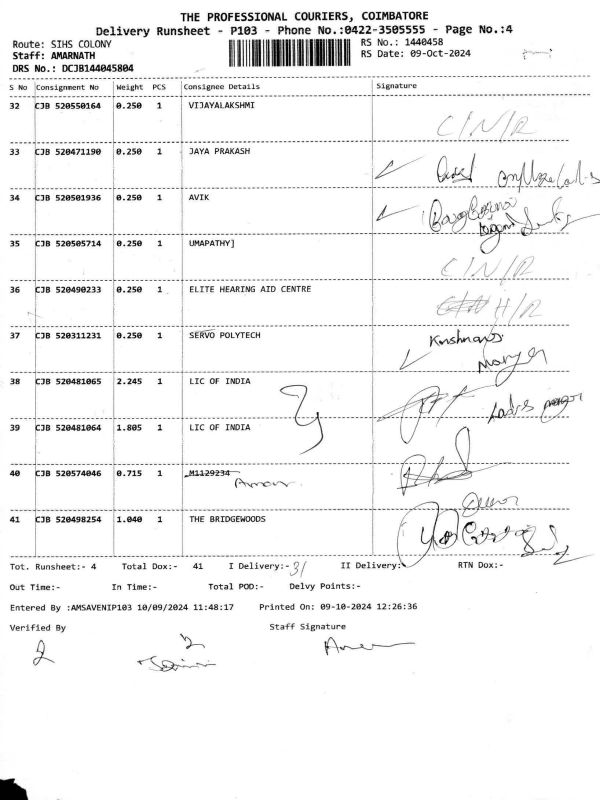 THE PROFESSIONAL COURIERS, COIMBATORE
Delivery Runsheet - P103 - Phone No.:0422-3505555 - Page No.:4
Route: SIHS COLONY RS No.: 1440458
Staff: AMARNATH RS Date: 09-Oct-2024
DRS No.: DCJB144045804
S No Consignment No Weight PCS Consignee Details Signature
32 CJB 520550164 0.250 1 VIJAYALAKSHMI C/N/R
33 CJB 520471190 0.250 1 JAYA PRAKASH
34 CJB 520501936 0.250 1 AVIK
35 CJB 520505714 0.250 1 UMAPATHY] C/N/R
36 CJB 520490233 0.250 1 ELITE HEARING AID CENTRE H/R
37 CJB 520311231 0.250 1 SERVO POLYTECH
38 CJB 520481065 2.245 1 LIC OF INDIA
39 CJB 520481064 1.805 1 LIC OF INDIA
40 CJB 520574046 0.715 1 M1129234
41 CJB 520498254 1.040 1 THE BRIDGEWOODS
Tot. Runsheet:- 4 Total Dox:- 41 I Delivery:- 31 II Delivery:- RTN Dox:-
Out Time:- In Time:- Total POD:- Delvy Points:-
Entered By :AMSAVENIP103 10/09/2024 11:48:17 Printed On: 09-10-2024 12:26:36
Verified By Staff Signature